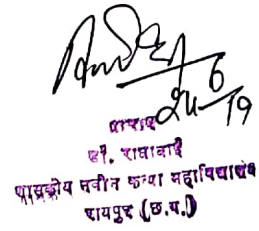 24/6/19
प्राचार्य
डॉ. राधाबाई
शासकीय नवीन कन्या महाविद्यालय
रायपुर (छ.ग.)